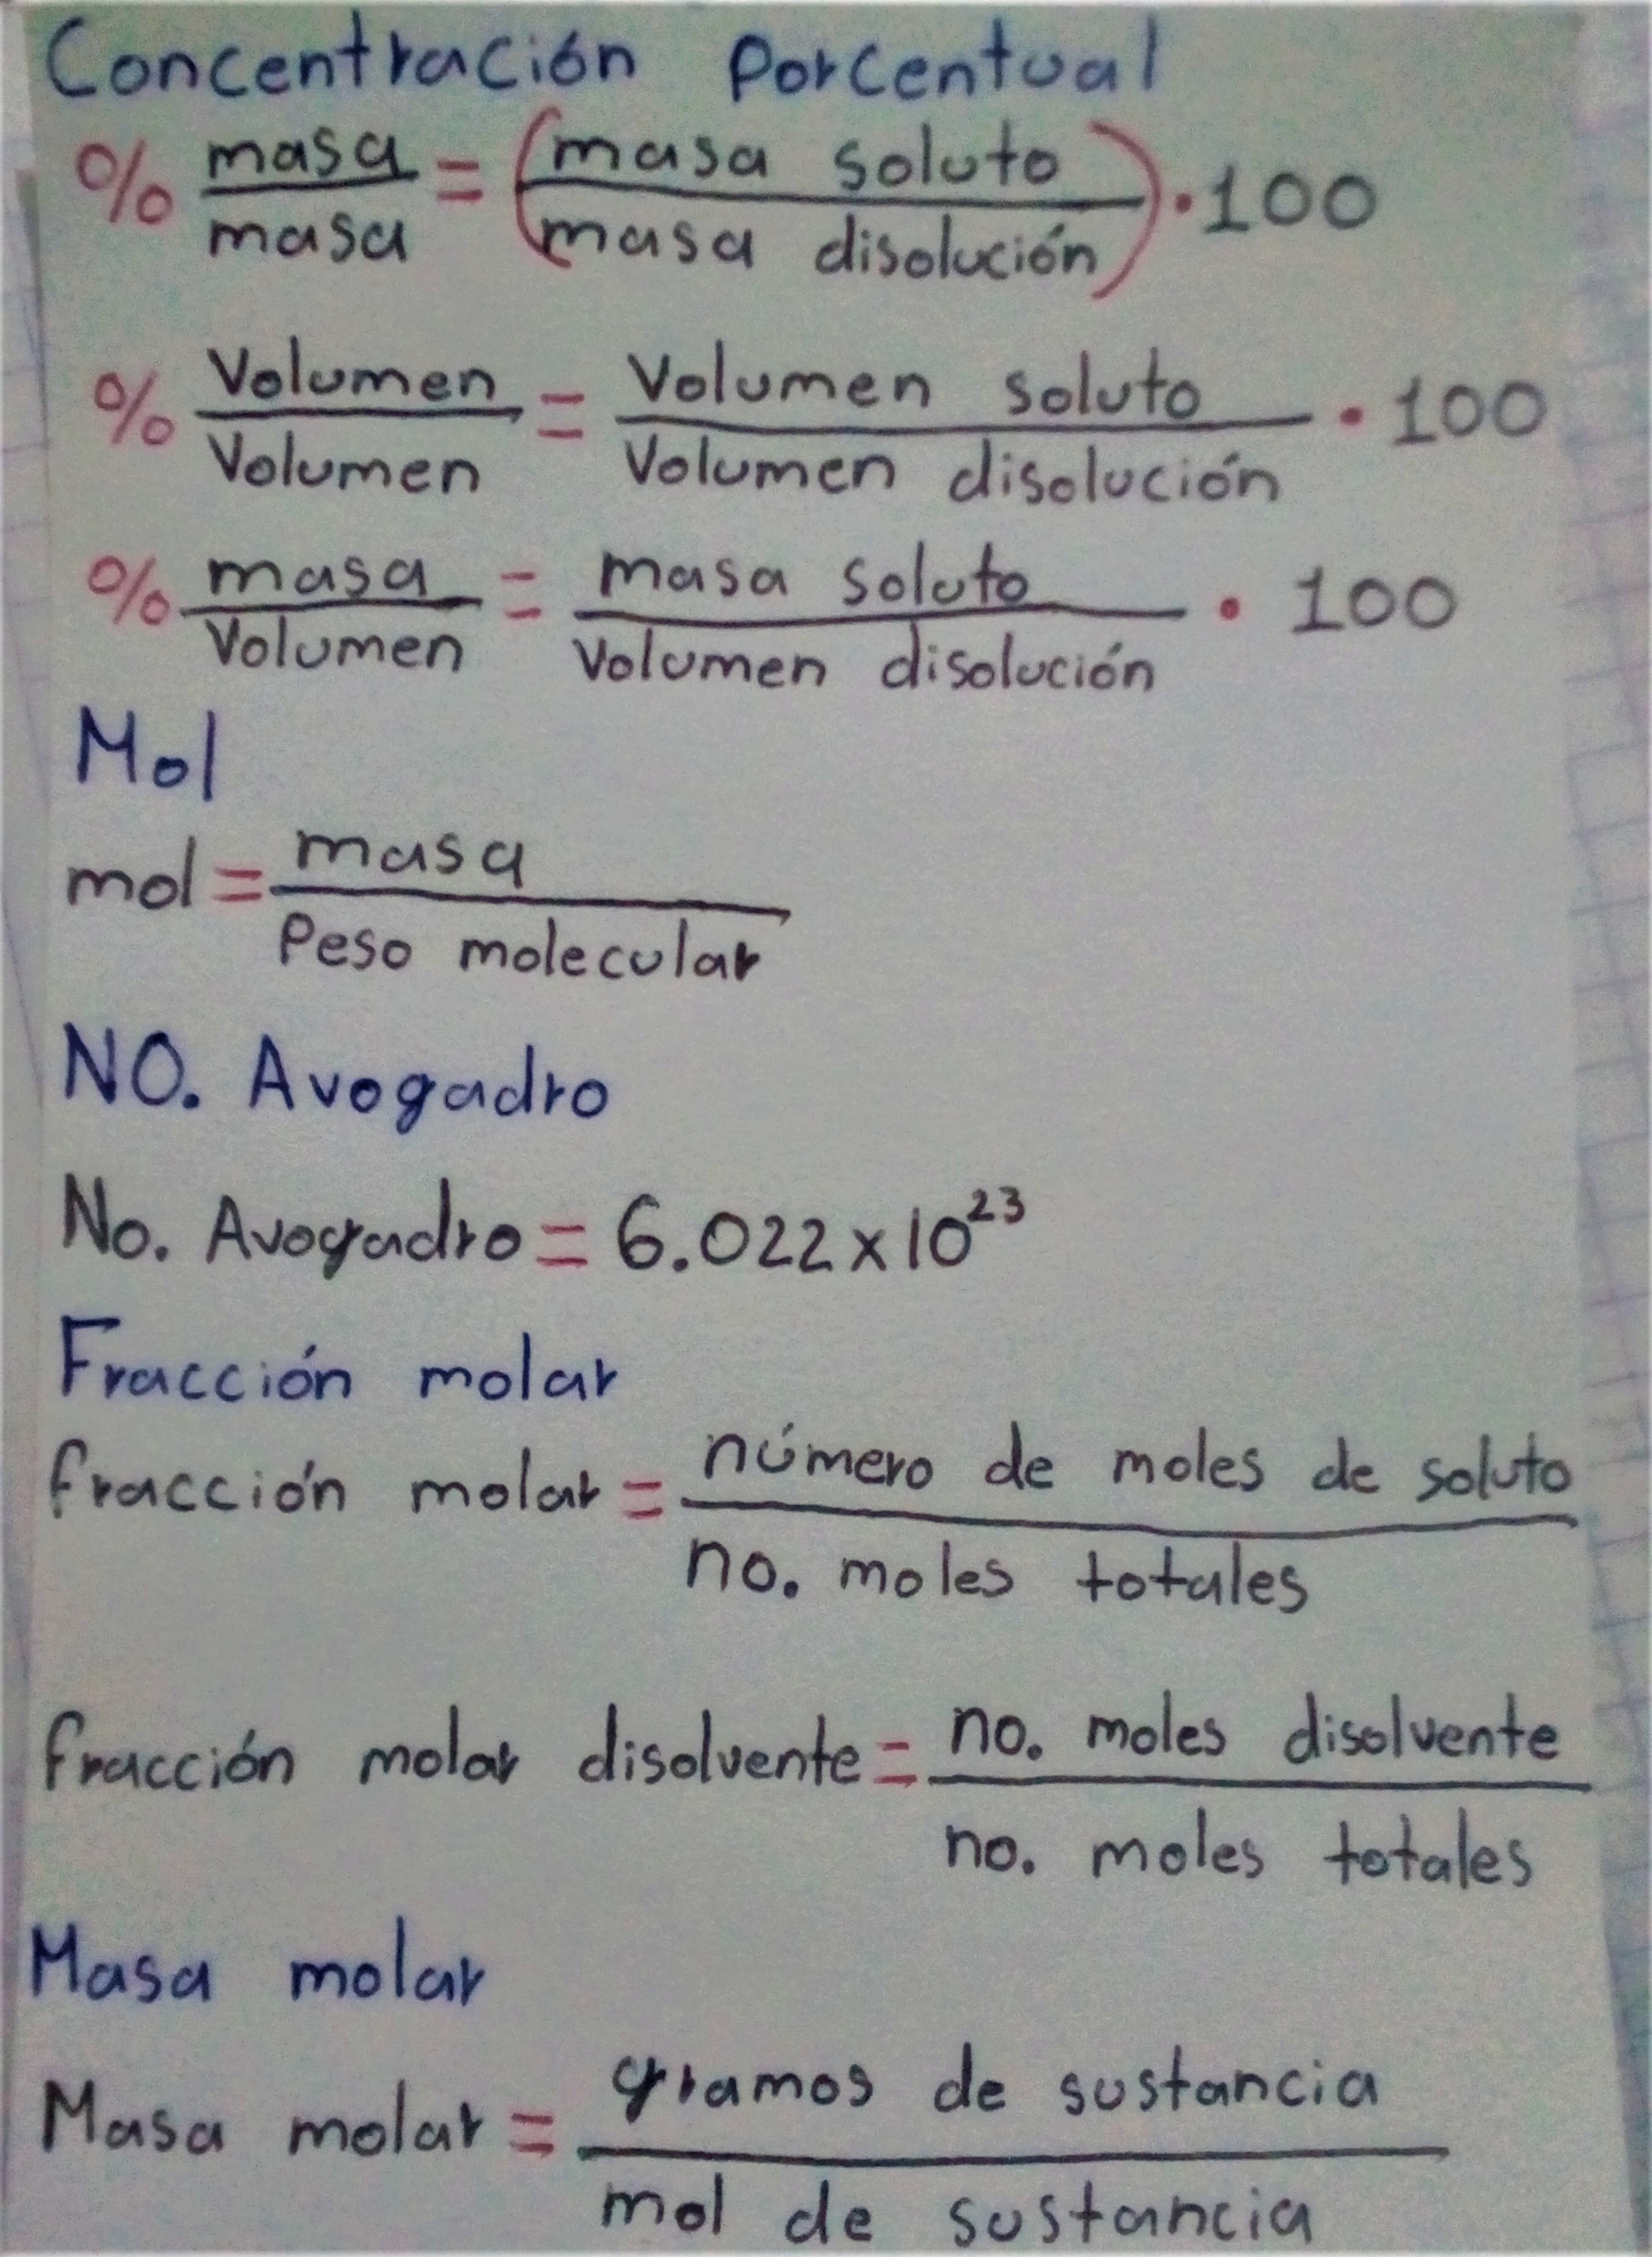 Concentración Porcentual
% masa/masa = (masa soluto/masa disolución) · 100
% Volumen/Volumen = Volumen soluto/Volumen disolución · 100
% masa/Volumen = masa soluto/Volumen disolución · 100
Mol
mol = masa/Peso molecular
NO. Avogadro
No. Avogadro = 6.022 x 10²³
Fracción molar
fracción molar = número de moles de soluto/no. moles totales
fracción molar disolvente = no. moles disolvente/no. moles totales
Masa molar
Masa molar = gramos de sustancia/mol de sustancia